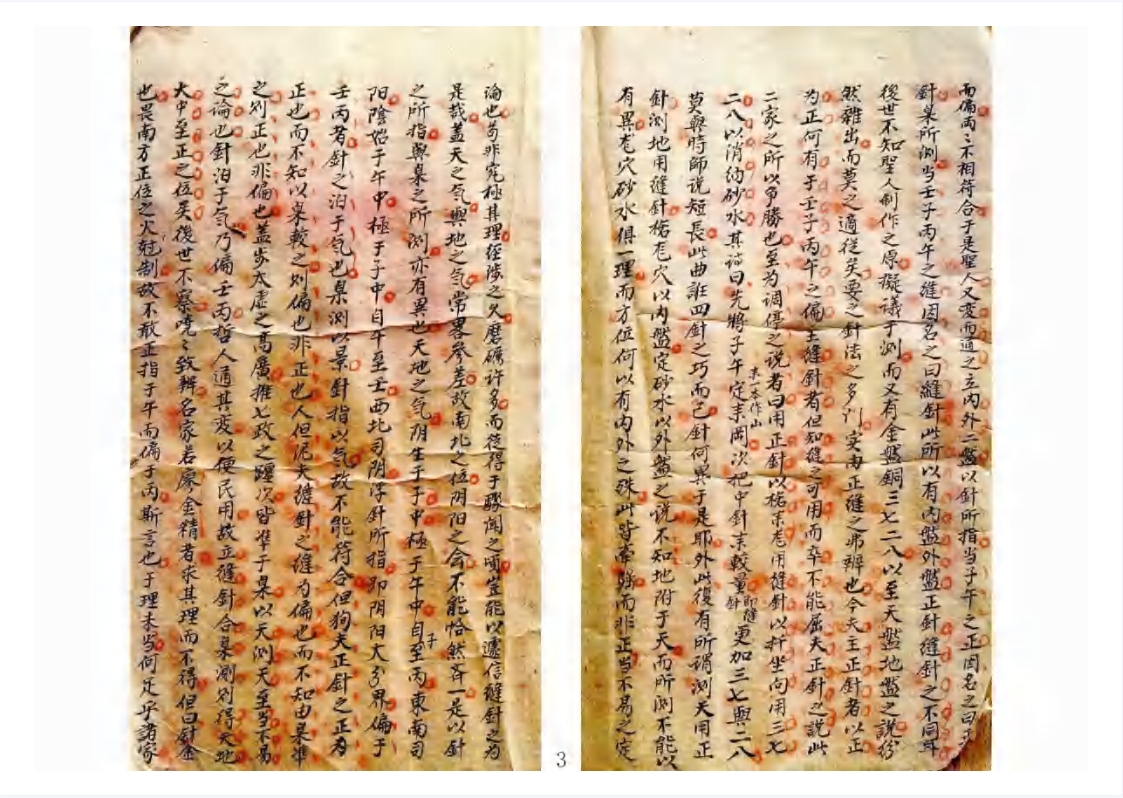 而偏兩〻不相符合于是聖人又变而通之立内外二盤以針所指当子午之正因名之曰正
針臬所測当壬子丙午之缝因名之曰縫針此所以有内盤外盤正針縫針之不同耳
後世不知聖人制作之原擬議于測而又有金盤銅三七二八以至天盤地盤之說份
然雜出而莫之適從矣要之針法之多门实由正縫之弗辨也今夫主正針者以正
为正何有于壬子丙午之偏主缝針者但知缝之可用而卒不能屈夫正針之說此
二家之所以争勝也至为调停之說者曰用正針以格来龙用缝針以扦坐向用三七
二八以消纳砂水其诗曰先将子午定来岡来一本作山次把中針来較量即缝針更加三七與二八
莫與時師說短長此曲誑四針之巧而已針何異于是耶外此復有所谓測天用正
針測地用缝針格龙穴以内盤定砂水以外盤之說不知地附于天而所測不能以
有異龙穴砂水俱一理而方位何以有内外之殊此皆牽強而非正当不易之定
論也苟非究極其理经陟之久磨礪许多而後得于驟闻之頃岂能以遽信缝針之为
是哉盖天之气與地之气常畧参差故南北之位阴阳之会不能恰然斉一是以針
之所指與臬之所測亦有異也天地之气阴生于子中極于午中自子至丙東南司
阳陰始于午中極于子中自午至壬西北司阴浮針所指即阴阳大分界偏于
壬丙者針之泊于气也臬測以景針指以气故不能符合但狥夫正針之正为
正也而不知以臬較之则偏也非正也人但泥夫缝針之缝为偏也而不知由臬準
之则正也非偏也盖步太虚之高廣推七政之躔次皆準于臬以天測天至当不易
之论也針泊于气乃偏壬丙哲人通其变以便民用故立缝針合臬測则得天地
大中至正之位矣後世不察嘵〻致辨名家若廖金精者求其理而不得但曰針金
也畏南方正位之火尅制故不敢正指于午而偏于丙斯言也于理未当何足乎諸家